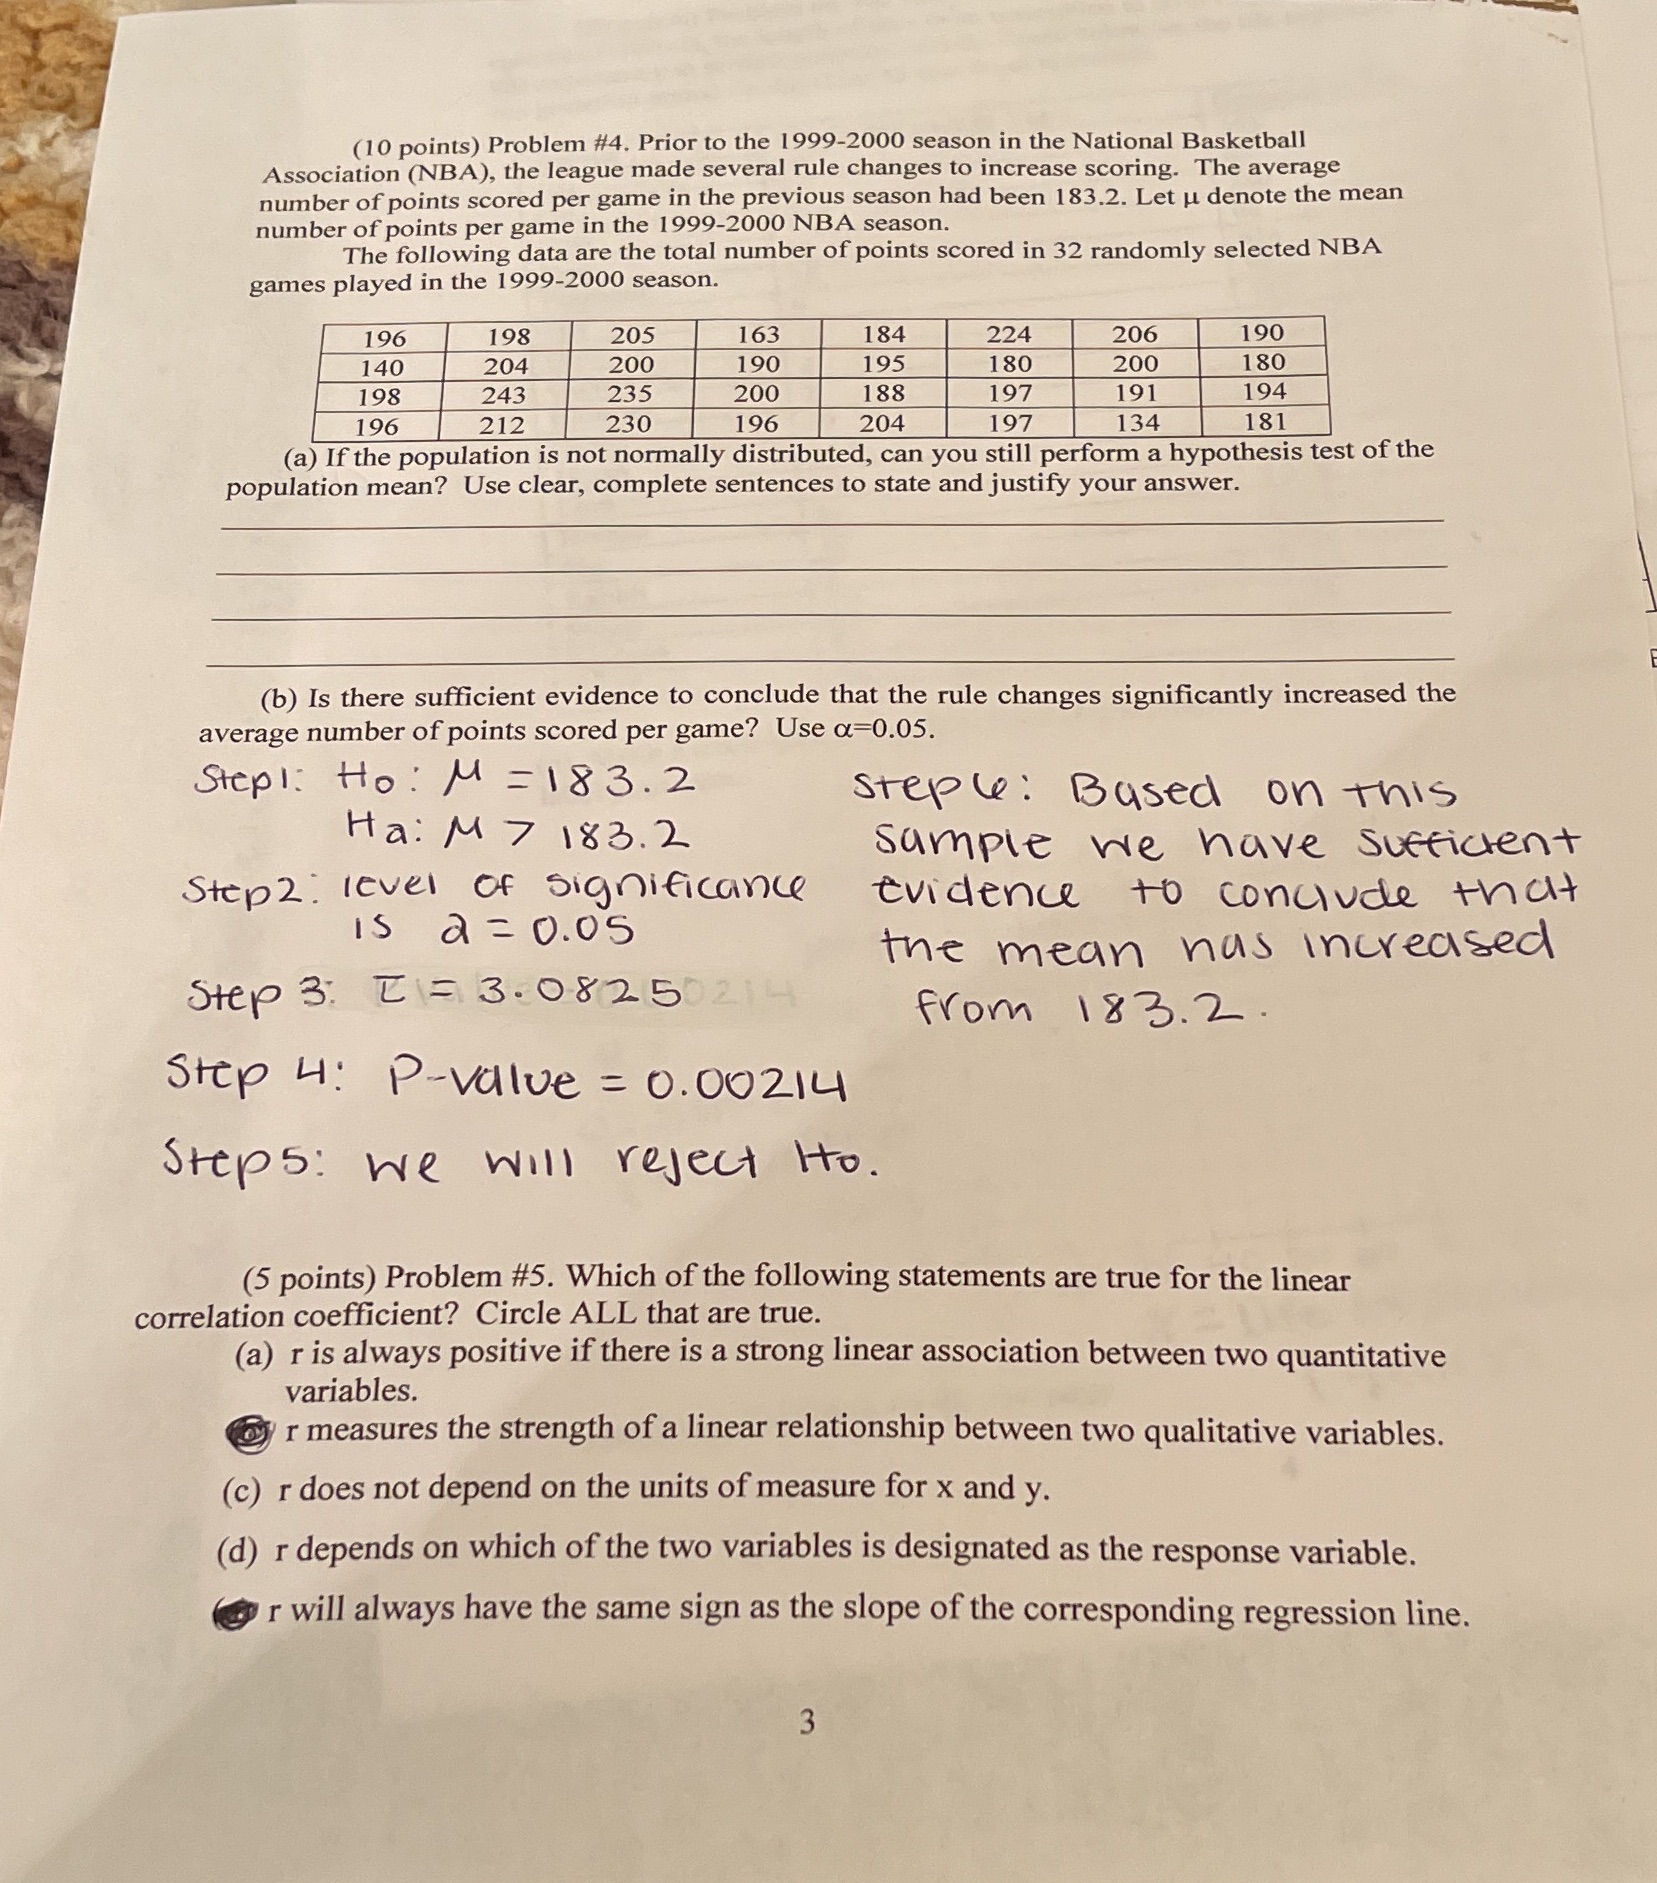 (10 points) Problem #4. Prior to the 1999-2000 season in the National Basketball
Association (NBA), the league made several rule changes to increase scoring. The average
number of points scored per game in the previous season had been 183.2. Let μ denote the mean
number of points per game in the 1999-2000 NBA season.
The following data are the total number of points scored in 32 randomly selected NBA
games played in the 1999-2000 season.
196 198 205 163 184 224 206 190
140 204 200 190 195 180 200 180
198 243 235 200 188 197 191 194
196 212 230 196 204 197 134 181
(a) If the population is not normally distributed, can you still perform a hypothesis test of the
population mean? Use clear, complete sentences to state and justify your answer.
(b) Is there sufficient evidence to conclude that the rule changes significantly increased the
average number of points scored per game? Use α=0.05.
Step1: Ho: μ = 183.2
Ha: μ > 183.2
Step2: level of significance
is α = 0.05
Step 3: t = 3.0825
Step 4: P-value = 0.00214
Step5: we will reject Ho.
Step6: Based on this
sample we have sufficient
evidence to conclude that
the mean has increased
from 183.2.
(5 points) Problem #5. Which of the following statements are true for the linear
correlation coefficient? Circle ALL that are true.
(a) r is always positive if there is a strong linear association between two quantitative
variables.
r measures the strength of a linear relationship between two qualitative variables.
(c) r does not depend on the units of measure for x and y.
(d) r depends on which of the two variables is designated as the response variable.
r will always have the same sign as the slope of the corresponding regression line.
3